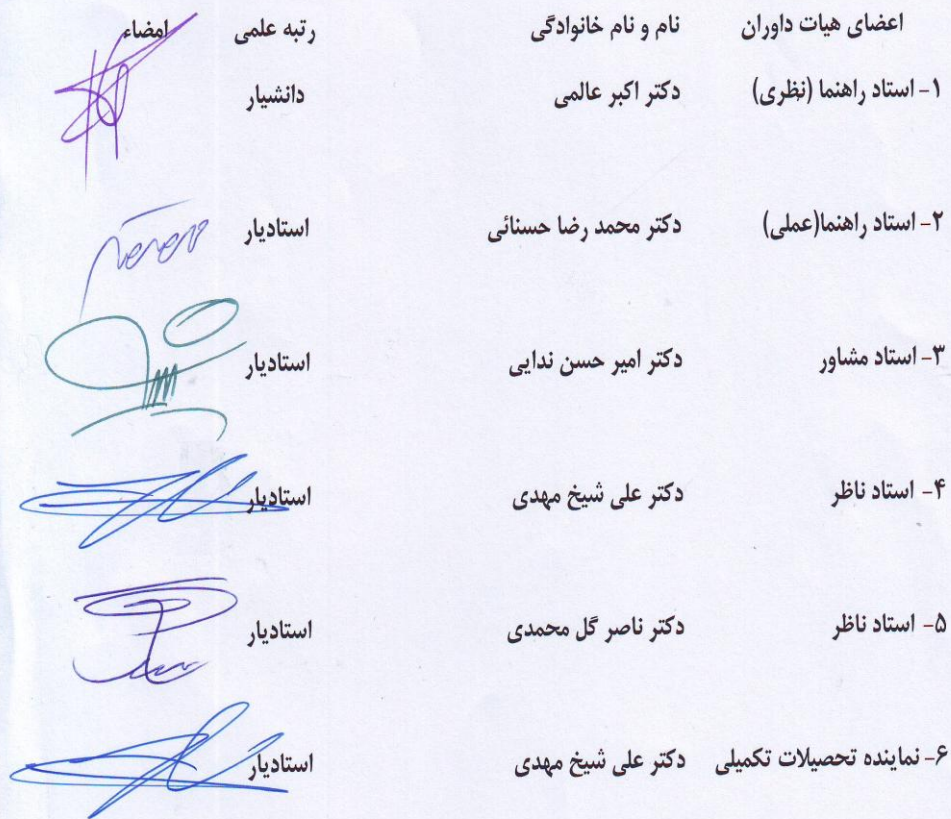 اعضای هیات داوران نام و نام خانوادگی رتبه علمی امضاء
۱- استاد راهنما (نظری) دکتر اکبر عالمی دانشیار
۲- استاد راهنما(عملی) دکتر محمد رضا حسنائی استادیار
۳- استاد مشاور دکتر امیر حسن ندایی استادیار
۴- استاد ناظر دکتر علی شیخ مهدی استادیار
۵- استاد ناظر دکتر ناصر گل محمدی استادیار
۶- نماینده تحصیلات تکمیلی دکتر علی شیخ مهدی استادیار